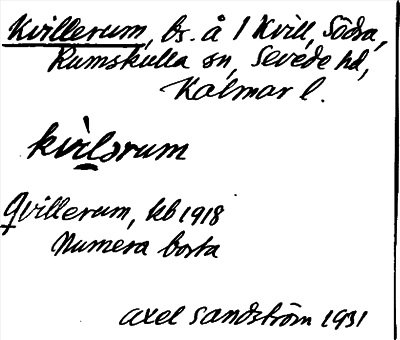 Kvillerum, bs. å 1 Kvill, Södra,
Rumskulla sn, Sevede hd,
Kalmar l.
kvìlərum
Qvillerum, kb 1918
Numera borta
Axel Sandström 1931